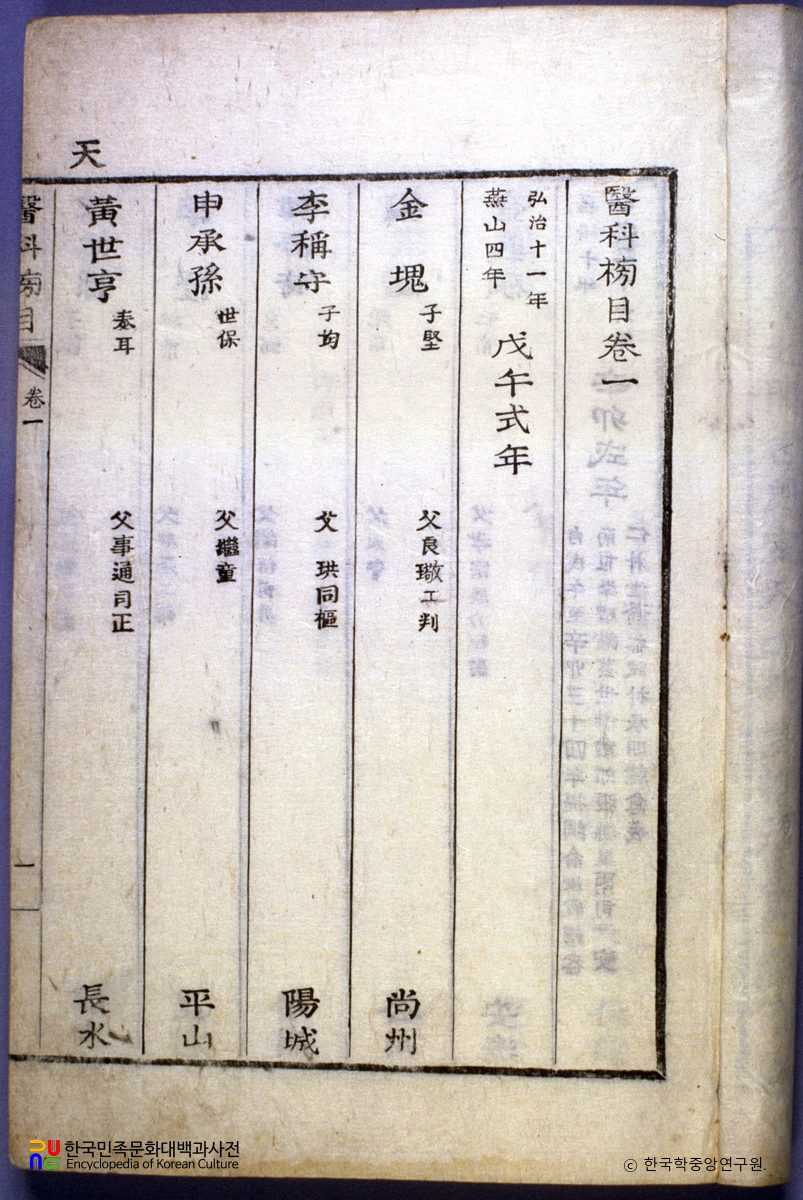 天
醫科榜目卷一
弘治十一年
燕山四年
戊午式年
金塊 子堅 父良璥工判 尚州
李稱守 子均 父珙同樞 陽城
申承孫 世保 父繼童 平山
黃世亨 泰耳 父事通司正 長水
醫科榜目 卷一 一
한국민족문화대백과사전
Encyclopedia of Korean Culture
© 한국학중앙연구원.